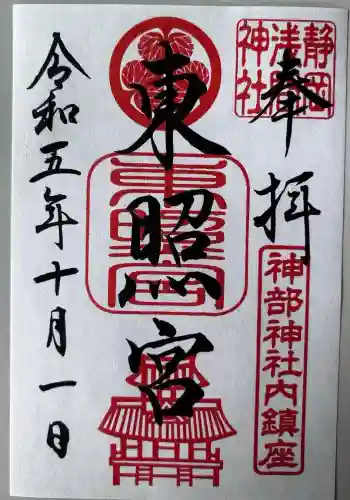 奉拝
静岡浅間神社
神部神社内鎮座
東照宮
令和五年十月一日